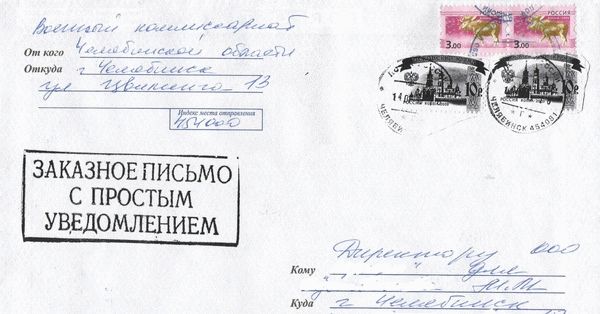 Военный комиссариат
От кого Челябинской области
Откуда г Челябинск
ул 13
Индекс места отправления
454000
РОССИЯ
3.00 3.00
10р 10р
ЧЕЛЯБИНСК 454091
ЗАКАЗНОЕ ПИСЬМО
С ПРОСТЫМ
УВЕДОМЛЕНИЕМ
Директору ООО
Кому
Куда г Челябинск